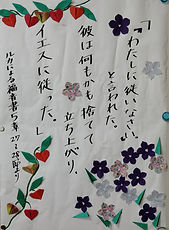 「『わたしに従いなさい。』
と言われた。
彼は何もかも捨てて
立ち上がり、
イエスに従った。」
ルカによる福音書5章27
〜28節より